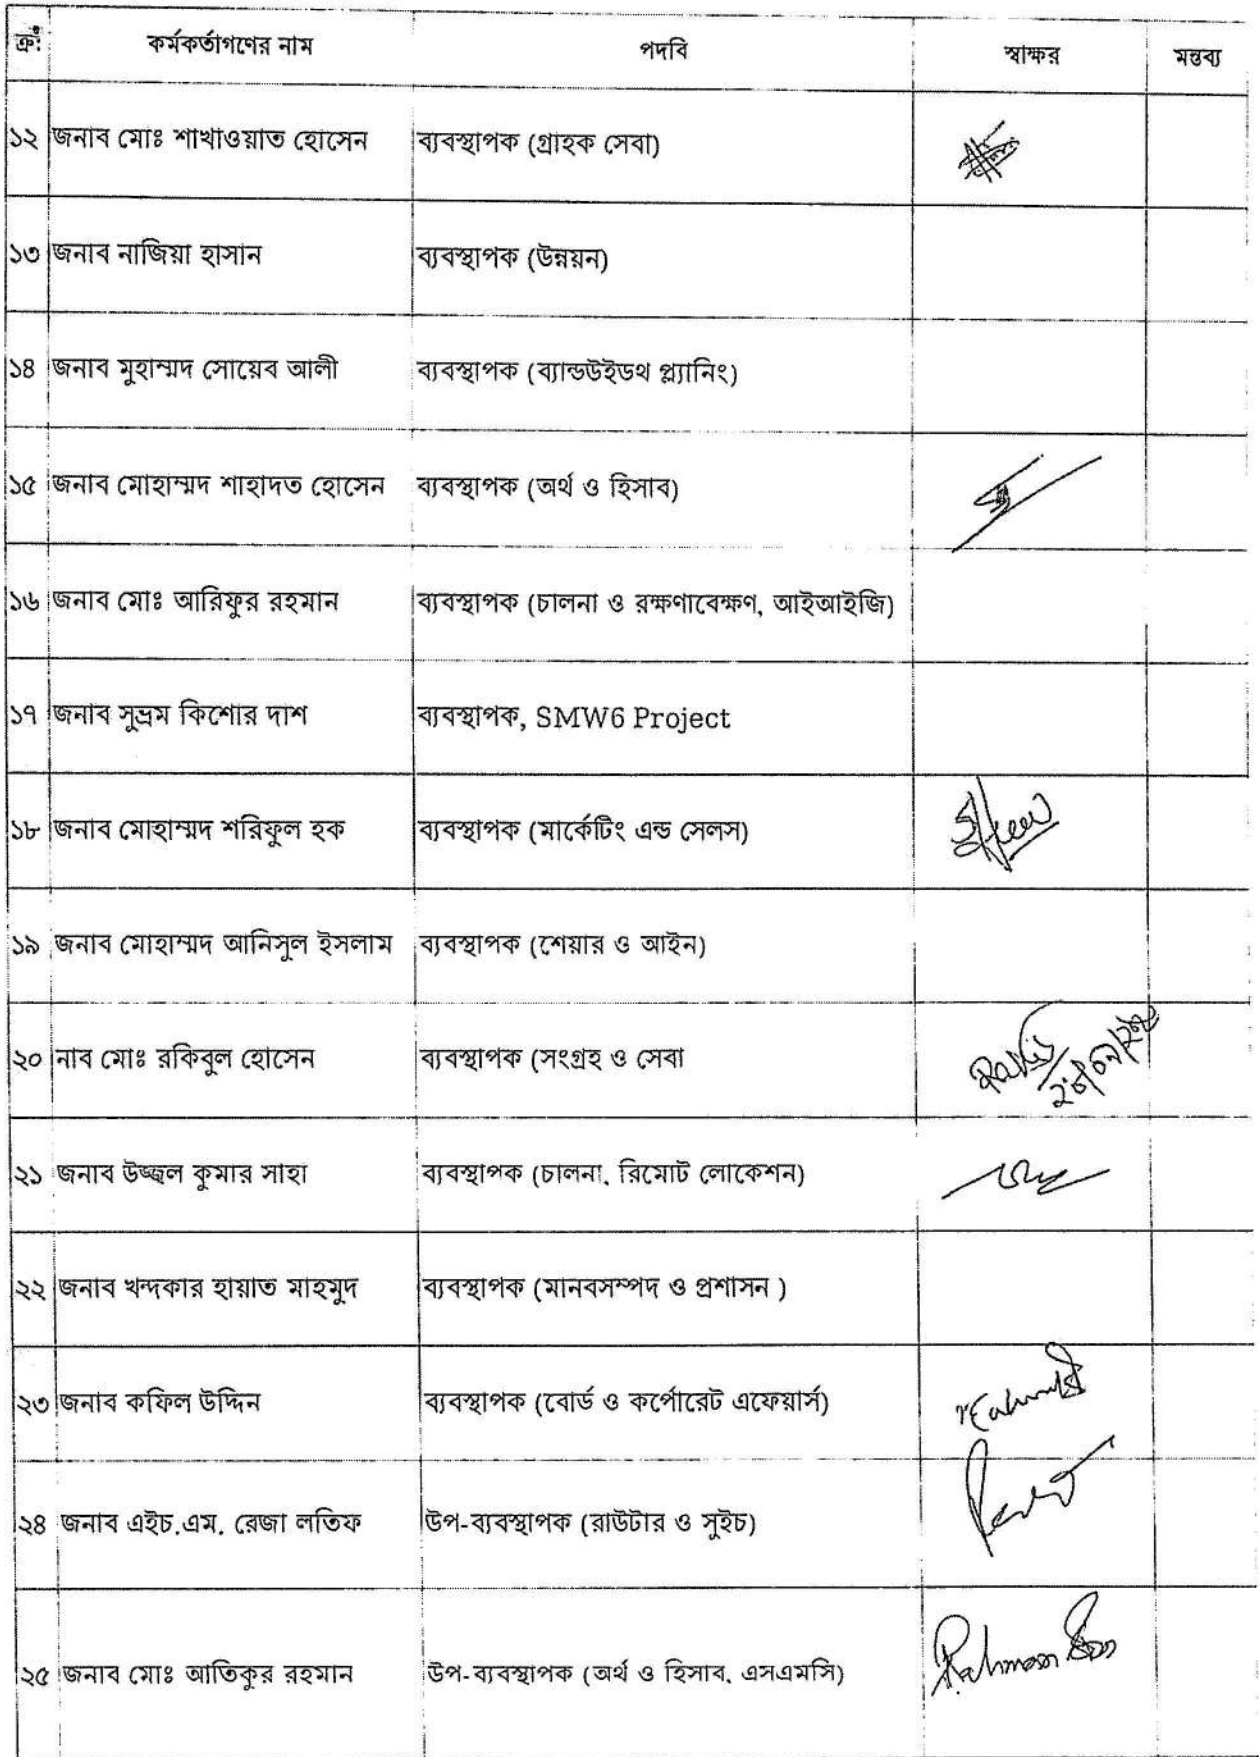 ক্র: কর্মকর্তাগণের নাম পদবি স্বাক্ষর মন্তব্য
১২ জনাব মোঃ শাখাওয়াত হোসেন ব্যবস্থাপক (গ্রাহক সেবা)
১৩ জনাব নাজিয়া হাসান ব্যবস্থাপক (উন্নয়ন)
১৪ জনাব মুহাম্মদ সোয়েব আলী ব্যবস্থাপক (ব্যান্ডউইডথ প্ল্যানিং)
১৫ জনাব মোহাম্মদ শাহাদত হোসেন ব্যবস্থাপক (অর্থ ও হিসাব)
১৬ জনাব মোঃ আরিফুর রহমান ব্যবস্থাপক (চালনা ও রক্ষণাবেক্ষণ, আইআইজি)
১৭ জনাব সুভ্রম কিশোর দাশ ব্যবস্থাপক, SMW6 Project
১৮ জনাব মোহাম্মদ শরিফুল হক ব্যবস্থাপক (মার্কেটিং এন্ড সেলস)
১৯ জনাব মোহাম্মদ আনিসুল ইসলাম ব্যবস্থাপক (শেয়ার ও আইন)
২০ নাব মোঃ রকিবুল হোসেন ব্যবস্থাপক (সংগ্রহ ও সেবা
২১ জনাব উজ্জ্বল কুমার সাহা ব্যবস্থাপক (চালনা, রিমোট লোকেশন)
২২ জনাব খন্দকার হায়াত মাহমুদ ব্যবস্থাপক (মানবসম্পদ ও প্রশাসন )
২৩ জনাব কফিল উদ্দিন ব্যবস্থাপক (বোর্ড ও কর্পোরেট এফেয়ার্স)
২৪ জনাব এইচ.এম. রেজা লতিফ উপ-ব্যবস্থাপক (রাউটার ও সুইচ)
২৫ জনাব মোঃ আতিকুর রহমান উপ-ব্যবস্থাপক (অর্থ ও হিসাব, এসএমসি) Rahman